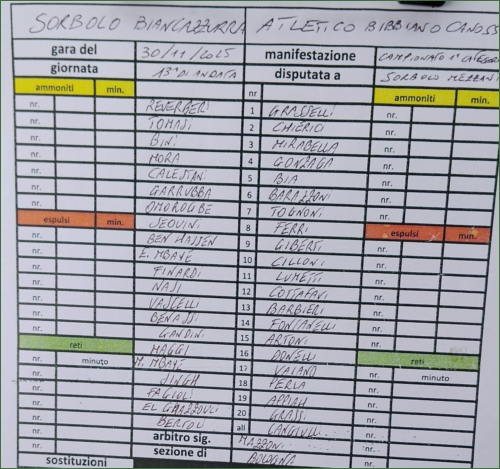 SORBOLO BIANCAZZURRA ATLETICO BIBBIANO CANOSS
gara del 30/11/2025 manifestazione CAMPIONATO 1ª CATEGORI
giornata 13ª DI ANDATA disputata a SORBOLO MEZZANI
ammoniti min. nr ammoniti min.
nr. REVERBERI 1 GRASSELLI nr.
nr. TOMASI 2 CHIERICI nr.
nr. BINI 3 MIRABELLA nr.
nr. MORA 4 GONZAGA nr.
nr. CALESTANI 5 BIA nr.
nr. GARRUBBA 6 BARAZZONI nr.
nr. OMOROGBE 7 TOGNONI nr.
espulsi min. SEQUINI 8 FERRI espulsi min.
nr. BEN HASSEN 9 GIBERTI nr.
nr. E. MBAYE 10 CILLONI nr.
nr. TINARDI 11 LUMETTI nr.
nr. NASI 12 COTTAFAVI nr.
nr. VASCELLI 13 BARBIERI nr.
nr. BENASSI 14 FONTANELLI nr.
GANDINI 15 ARTONI
reti MAGGI 16 DONELLI reti
nr. minuto M. MBAYE 17 VAIANO nr. minuto
nr. SINGH 18 PERLA nr.
nr. FAGIOLI 19 APPIAH nr.
nr. EL GAAZOULI 20 GRASSI nr.
nr. BERTOLI all CANGIULLI nr.
nr. arbitro sig. MAZZONI nr.
sostituzioni sezione di BOLOGNA